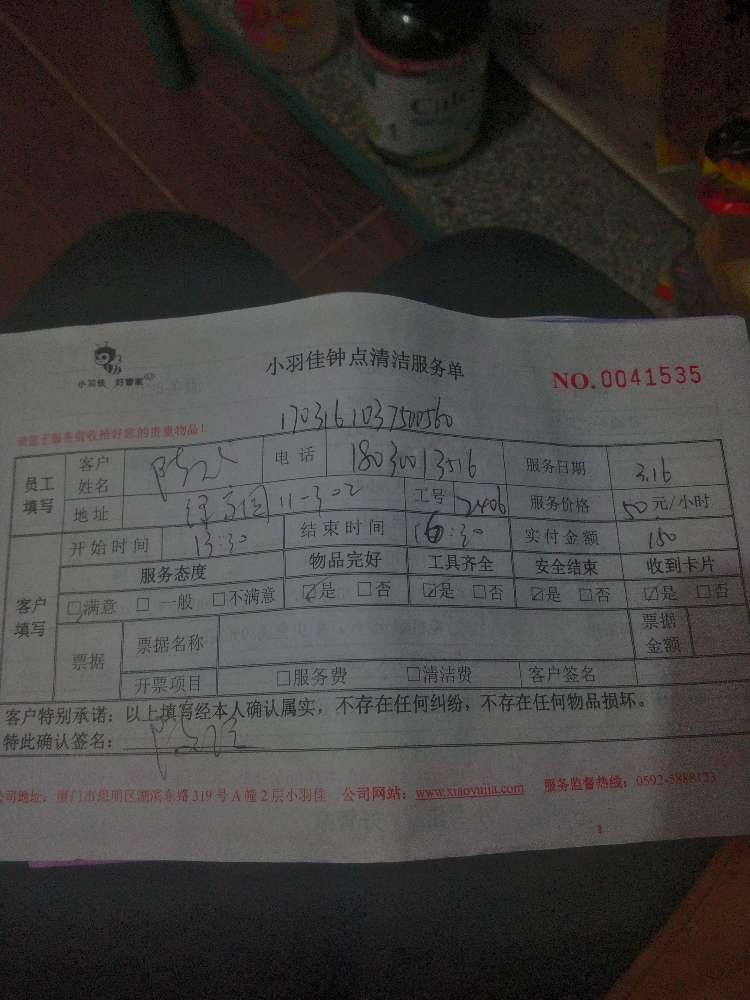 Cafe
小羽佳 好管家
小羽佳钟点清洁服务单
NO.0041535
1703161037500560
请您于服务前收拾好您的贵重物品！
员工填写 客户姓名 电话 18030013516 服务日期 3.16
地址 11-302 工号 2406 服务价格 50元/小时
客户填写 开始时间 13:30 结束时间 16:30 实付金额 150
服务态度 物品完好 工具齐全 安全结束 收到卡片
☑满意 □一般 □不满意 ☑是 □否 ☑是 □否 ☑是 □否 ☑是 □否
票据 票据名称 票据金额
开票项目 □服务费 □清洁费 客户签名
客户特别承诺：以上填写经本人确认属实，不存在任何纠纷，不存在任何物品损坏。
特此确认签名：
公司地址：厦门市思明区湖滨东路319号A幢2层小羽佳 公司网站：www.xiaoyujia.com 服务监督热线：0592-5888123